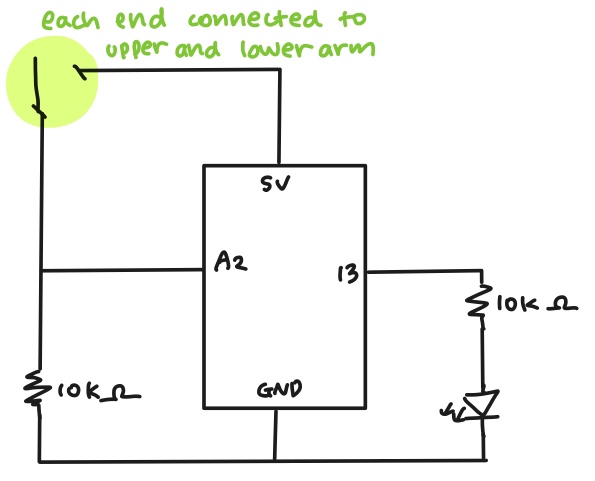 each end connected to
upper and lower arm
5V
A2
13
10K Ω
GND
10K Ω